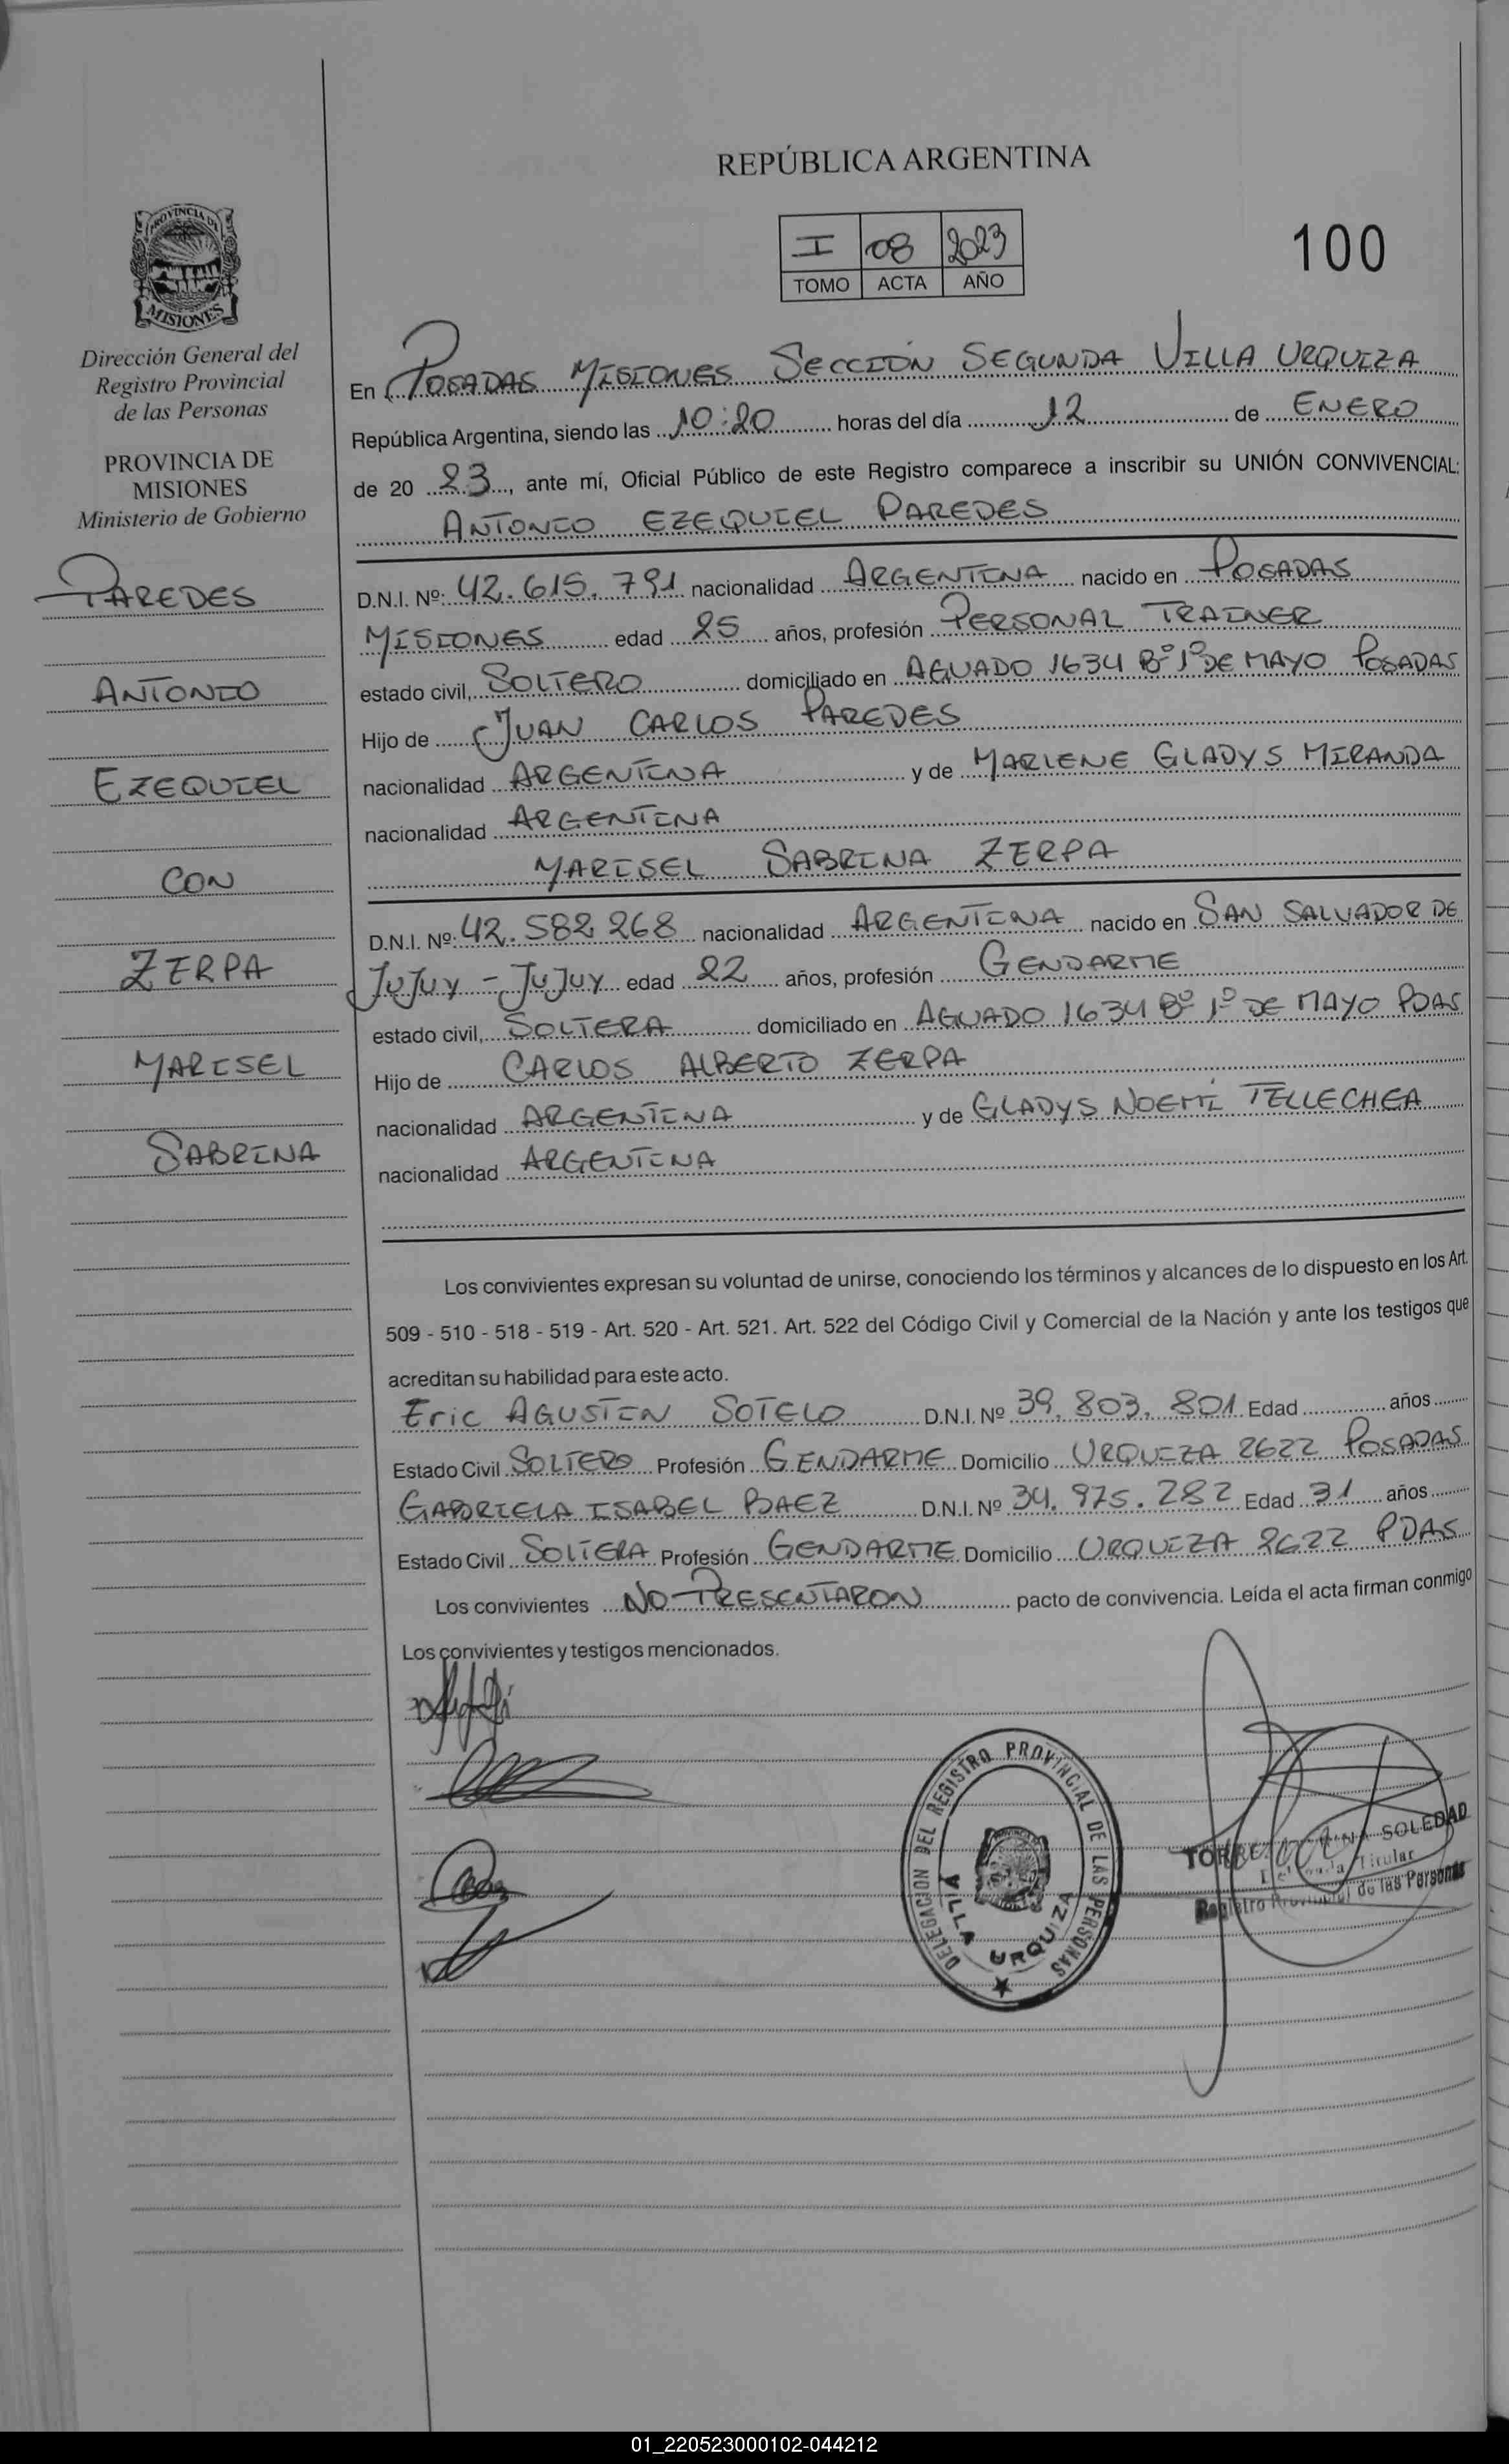 REPÚBLICA ARGENTINA
I 08 2023
TOMO ACTA AÑO
100
PROVINCIA DE
MISIONES
Dirección General del
Registro Provincial
de las Personas
PROVINCIA DE
MISIONES
Ministerio de Gobierno
PAREDES
ANTONIO
EZEQUIEL
CON
ZERPA
MARISEL
SABRINA
En POSADAS MISIONES SECCIÓN SEGUNDA VILLA URQUIZA
República Argentina, siendo las 10:20 horas del día 12 de ENERO
de 20 23, ante mí, Oficial Público de este Registro comparece a inscribir su UNIÓN CONVIVENCIAL:
ANTONIO EZEQUIEL PAREDES
D.N.I. Nº: 42.615.791 nacionalidad ARGENTINA nacido en POSADAS
MISIONES edad 25 años, profesión PERSONAL TRAINER
estado civil, SOLTERO domiciliado en AGUADO 1634 Bº 1º DE MAYO POSADAS
Hijo de JUAN CARLOS PAREDES
nacionalidad ARGENTINA y de MARLENE GLADYS MIRANDA
nacionalidad ARGENTINA
MARISEL SABRINA ZERPA
D.N.I. Nº: 42.582 268 nacionalidad ARGENTINA nacido en SAN SALVADOR DE
JUJUY - JUJUY edad 22 años, profesión GENDARME
estado civil, SOLTERA domiciliado en AGUADO 1634 Bº 1º DE MAYO PDAS
Hijo de CARLOS ALBERTO ZERPA
nacionalidad ARGENTINA y de GLADYS NOEMÍ TELLECHEA
nacionalidad ARGENTINA
Los convivientes expresan su voluntad de unirse, conociendo los términos y alcances de lo dispuesto en los Art.
509 - 510 - 518 - 519 - Art. 520 - Art. 521. Art. 522 del Código Civil y Comercial de la Nación y ante los testigos que
acreditan su habilidad para este acto.
Eric AGUSTIN SOTELO D.N.I. Nº 39.803.801 Edad años
Estado Civil SOLTERO Profesión GENDARME Domicilio URQUIZA 2622 POSADAS
GABRIELA ISABEL BAEZ D.N.I. Nº 34.975.282 Edad 31 años
Estado Civil SOLTERA Profesión GENDARME Domicilio URQUIZA 2622 PDAS
Los convivientes NO PRESENTARON pacto de convivencia. Leída el acta firman conmigo
Los convivientes y testigos mencionados.
DELEGACION DEL REGISTRO PROVINCIAL DE LAS PERSONAS
VILLA URQUIZA
SOLEDAD
Titular
Registro Provincial de las Personas
01_220523000102-044212